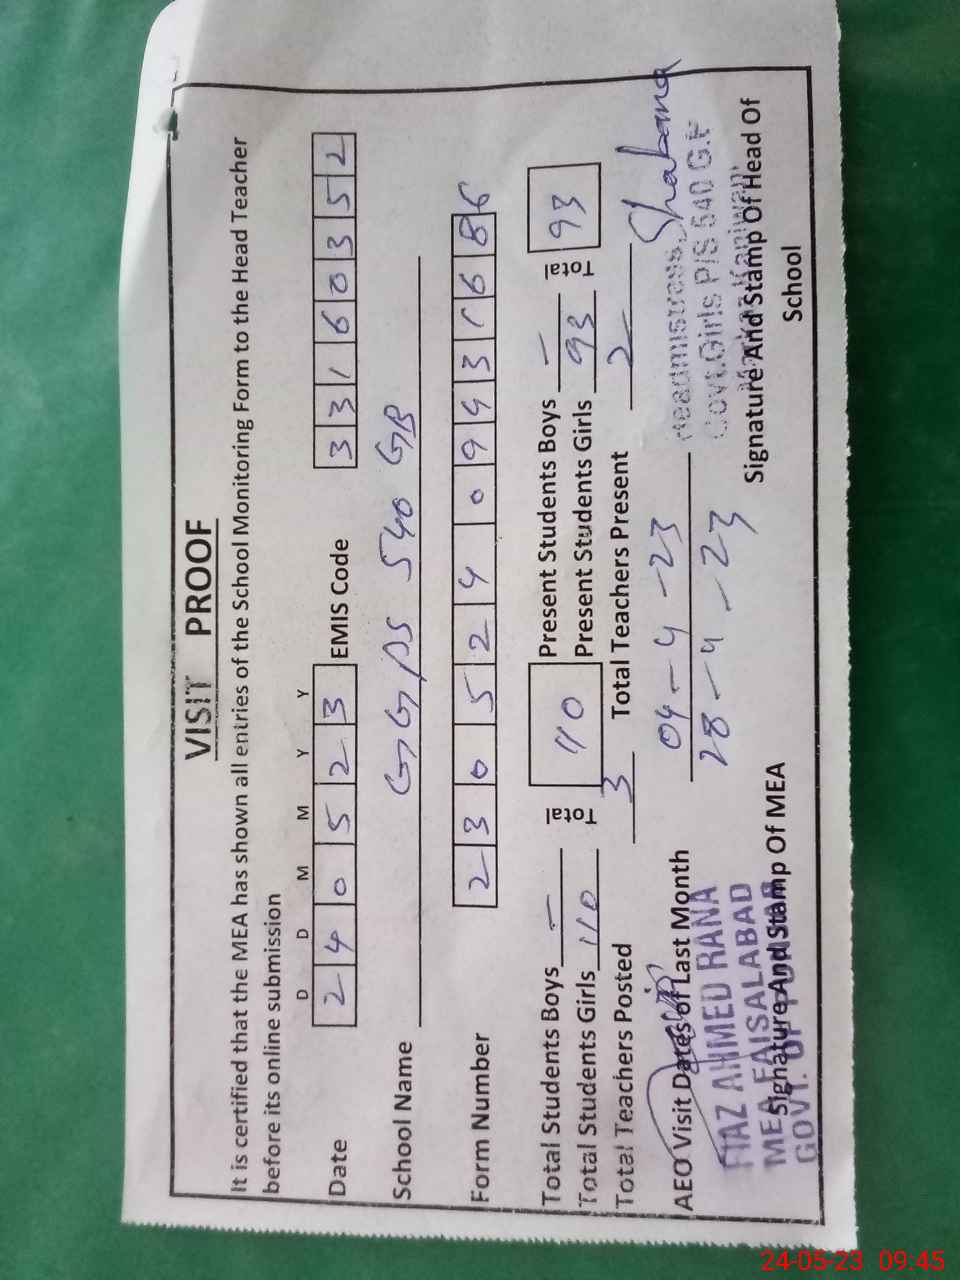 VISIT PROOF
It is certified that the MEA has shown all entries of the School Monitoring Form to the Head Teacher
before its online submission
D D M M Y Y
Date 2 4 0 5 2 3 EMIS Code 3 3 1 6 0 3 5 2
School Name GGPS 540 GB
Form Number 2 3 0 5 2 4 0 9 4 3 1 6 8 6
Total Students Boys - Total 110 Present Students Boys - Total 93
Total Students Girls 110 Present Students Girls 93
Total Teachers Posted 3 Total Teachers Present 2
AEO Visit Dates of Last Month 04-4-23
28-4-23
Shabana
FIAZ AHMED RANA
MEA FAISALABAD
GOVT. OF PUNJAB
Signature And Stamp Of MEA
Headmistress
Govt.Girls P/S 540 G.B
Signature And Stamp Of Head Of
School
24-05-23 09:45